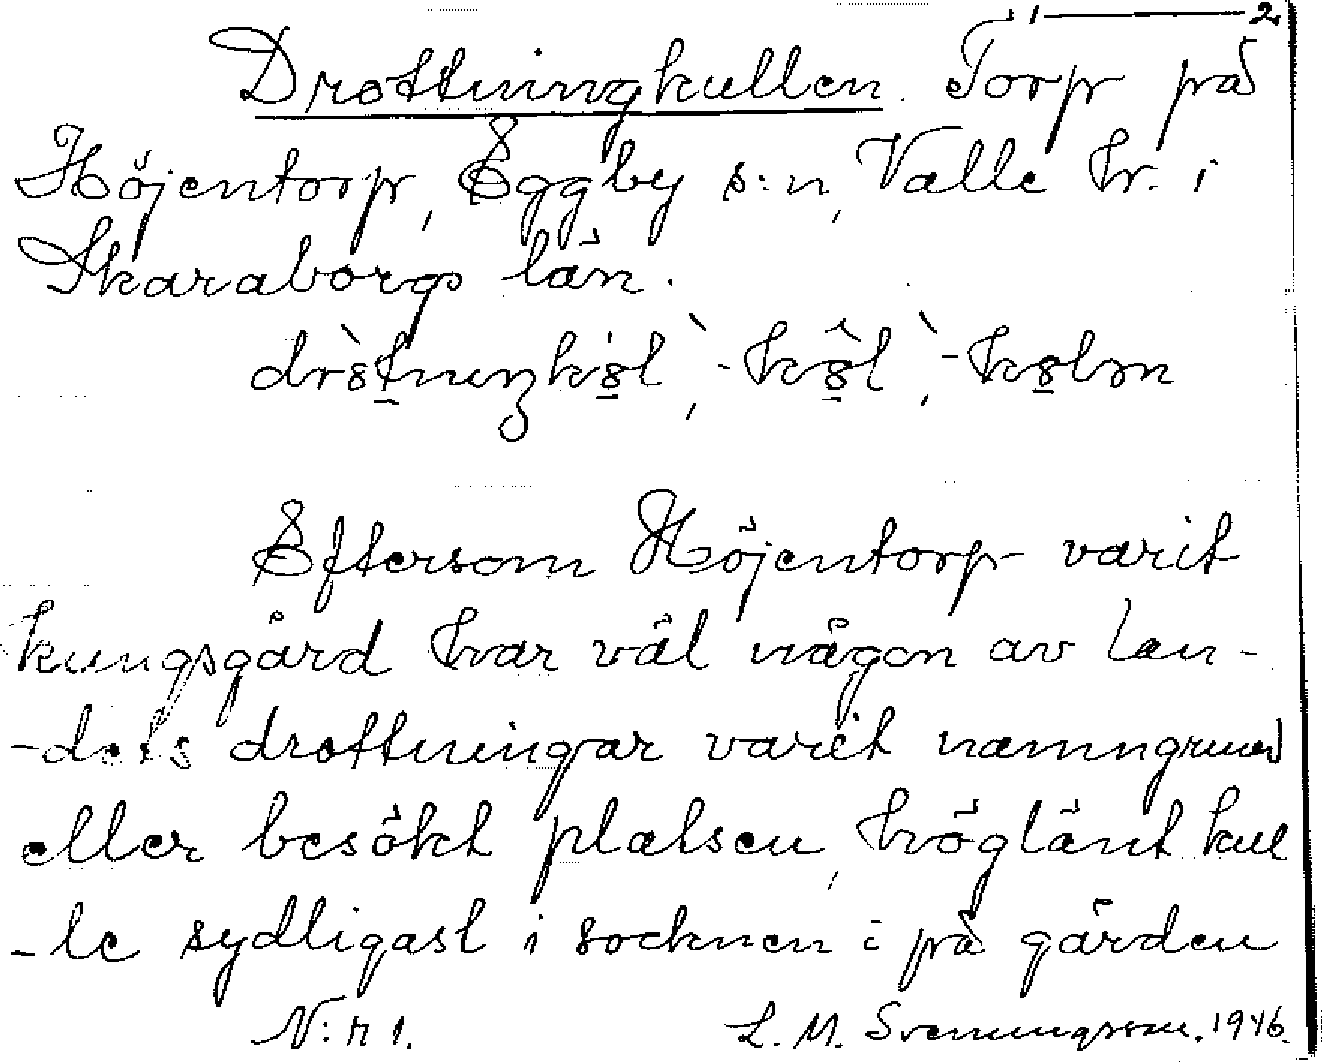 1 — 2
Drottningkullen. Torp på
Höjentorp, Eggby s:n, Valle hr. i
Skaraborgs län.
Eftersom Höjentorp varit
kungsgård har väl någon av lan-
-dets drottningar varit namngrund
eller besökt platsen, höglänt kull
-le sydligast i socknen i på gården
N:r 1. L. M. Svenungsson. 1946.